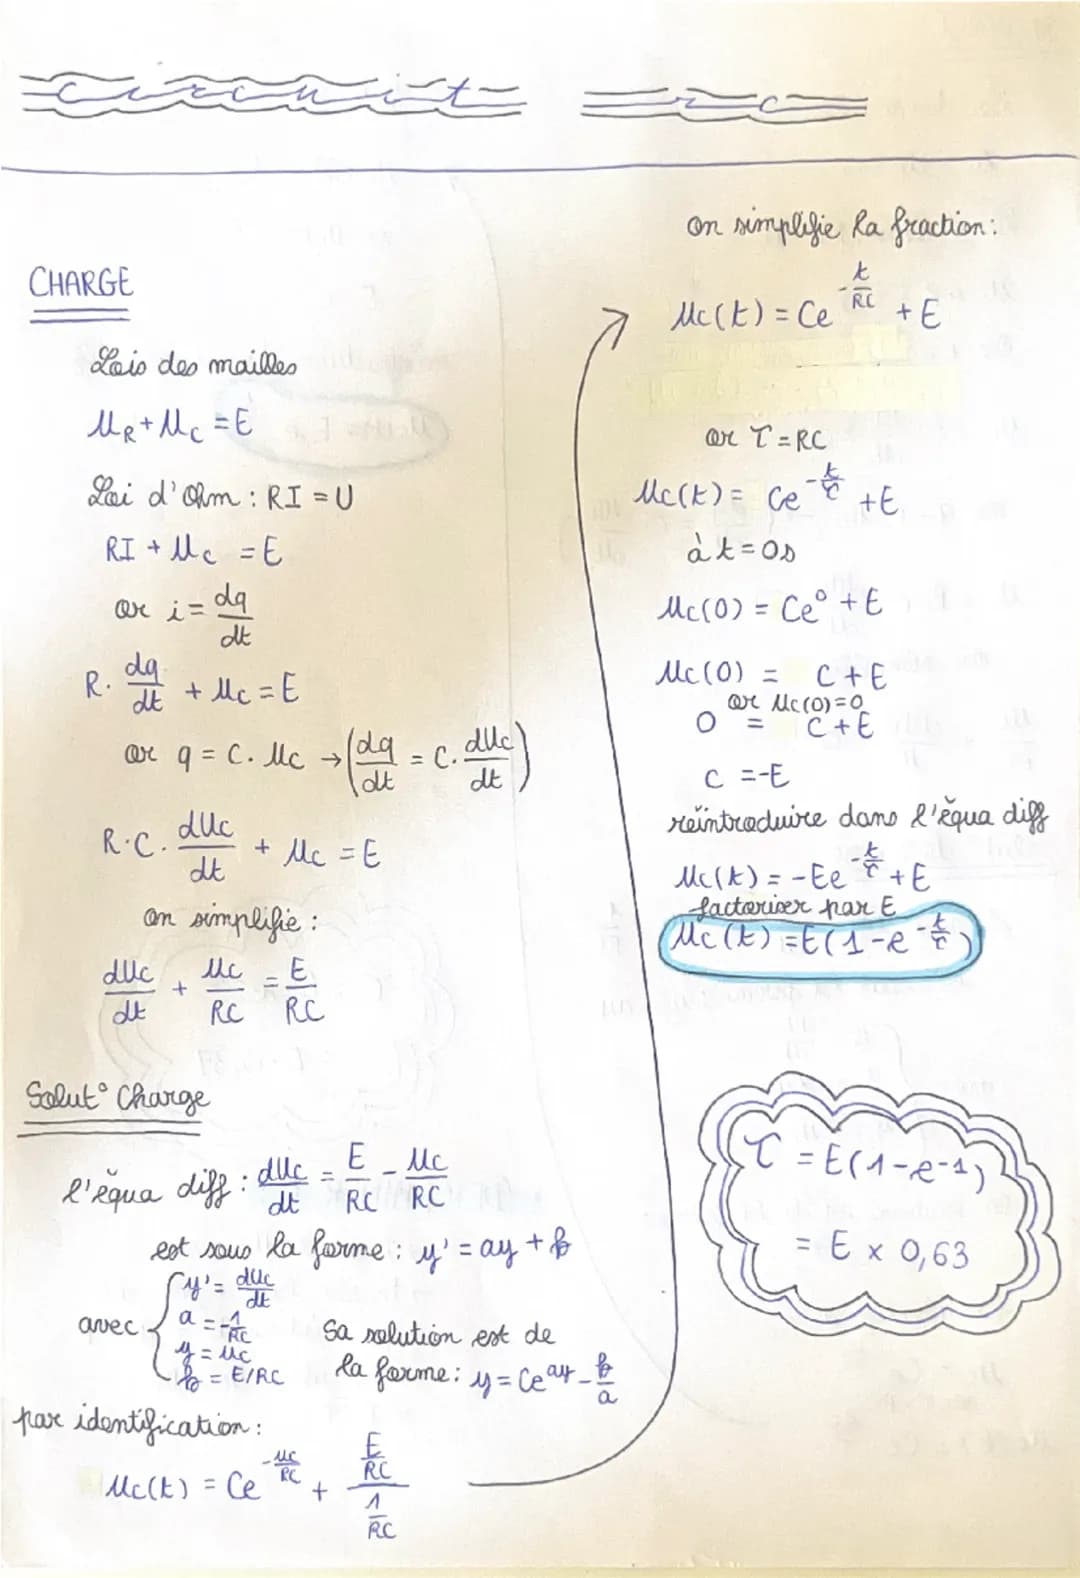 circuit rc
CHARGE
Lois des mailles
u_R + u_C = E
Loi d'Ohm : RI = U
RI + u_C = E
or i = dq/dt
R. dq/dt + u_C = E
or q = C. u_C → (dq/dt = C. du_C/dt)
R.C. du_C/dt + u_C = E
on simplifie :
du_C/dt + u_C/RC = E/RC
Solut° Charge
l'équa diff : du_C/dt = E/RC - u_C/RC
est sous la forme : y' = ay + b
avec { y' = du_C/dt
a = -1/RC
y = u_C
b = E/RC
Sa solution est de
la forme : y = Ce^ay - b/a
par identification :
u_C(t) = Ce^(-u_C/RC) + (E/RC)/(1/RC)
on simplifie la fraction :
u_C(t) = Ce^(-t/RC) + E
or τ = RC
u_C(t) = Ce^(-t/τ) + E
à t = 0s
u_C(0) = Ce^0 + E
u_C(0) = C + E
or u_C(0) = 0
0 = C + E
C = -E
réintroduire dans l'équa diff
u_C(t) = -Ee^(-t/τ) + E
factoriser par E
u_C(t) = E(1-e^(-t/τ))
τ = E(1-e-1)
= E x 0,63